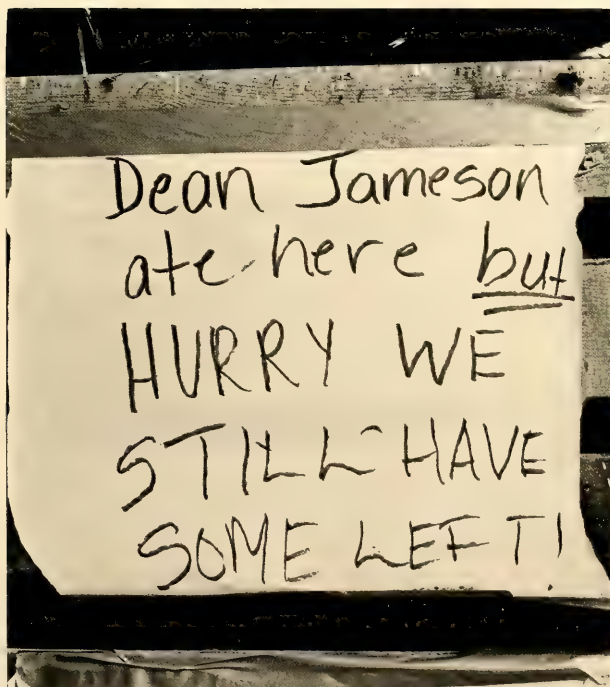 Dean Jameson
ate here but
HURRY WE
STILL HAVE
SOME LEFT!